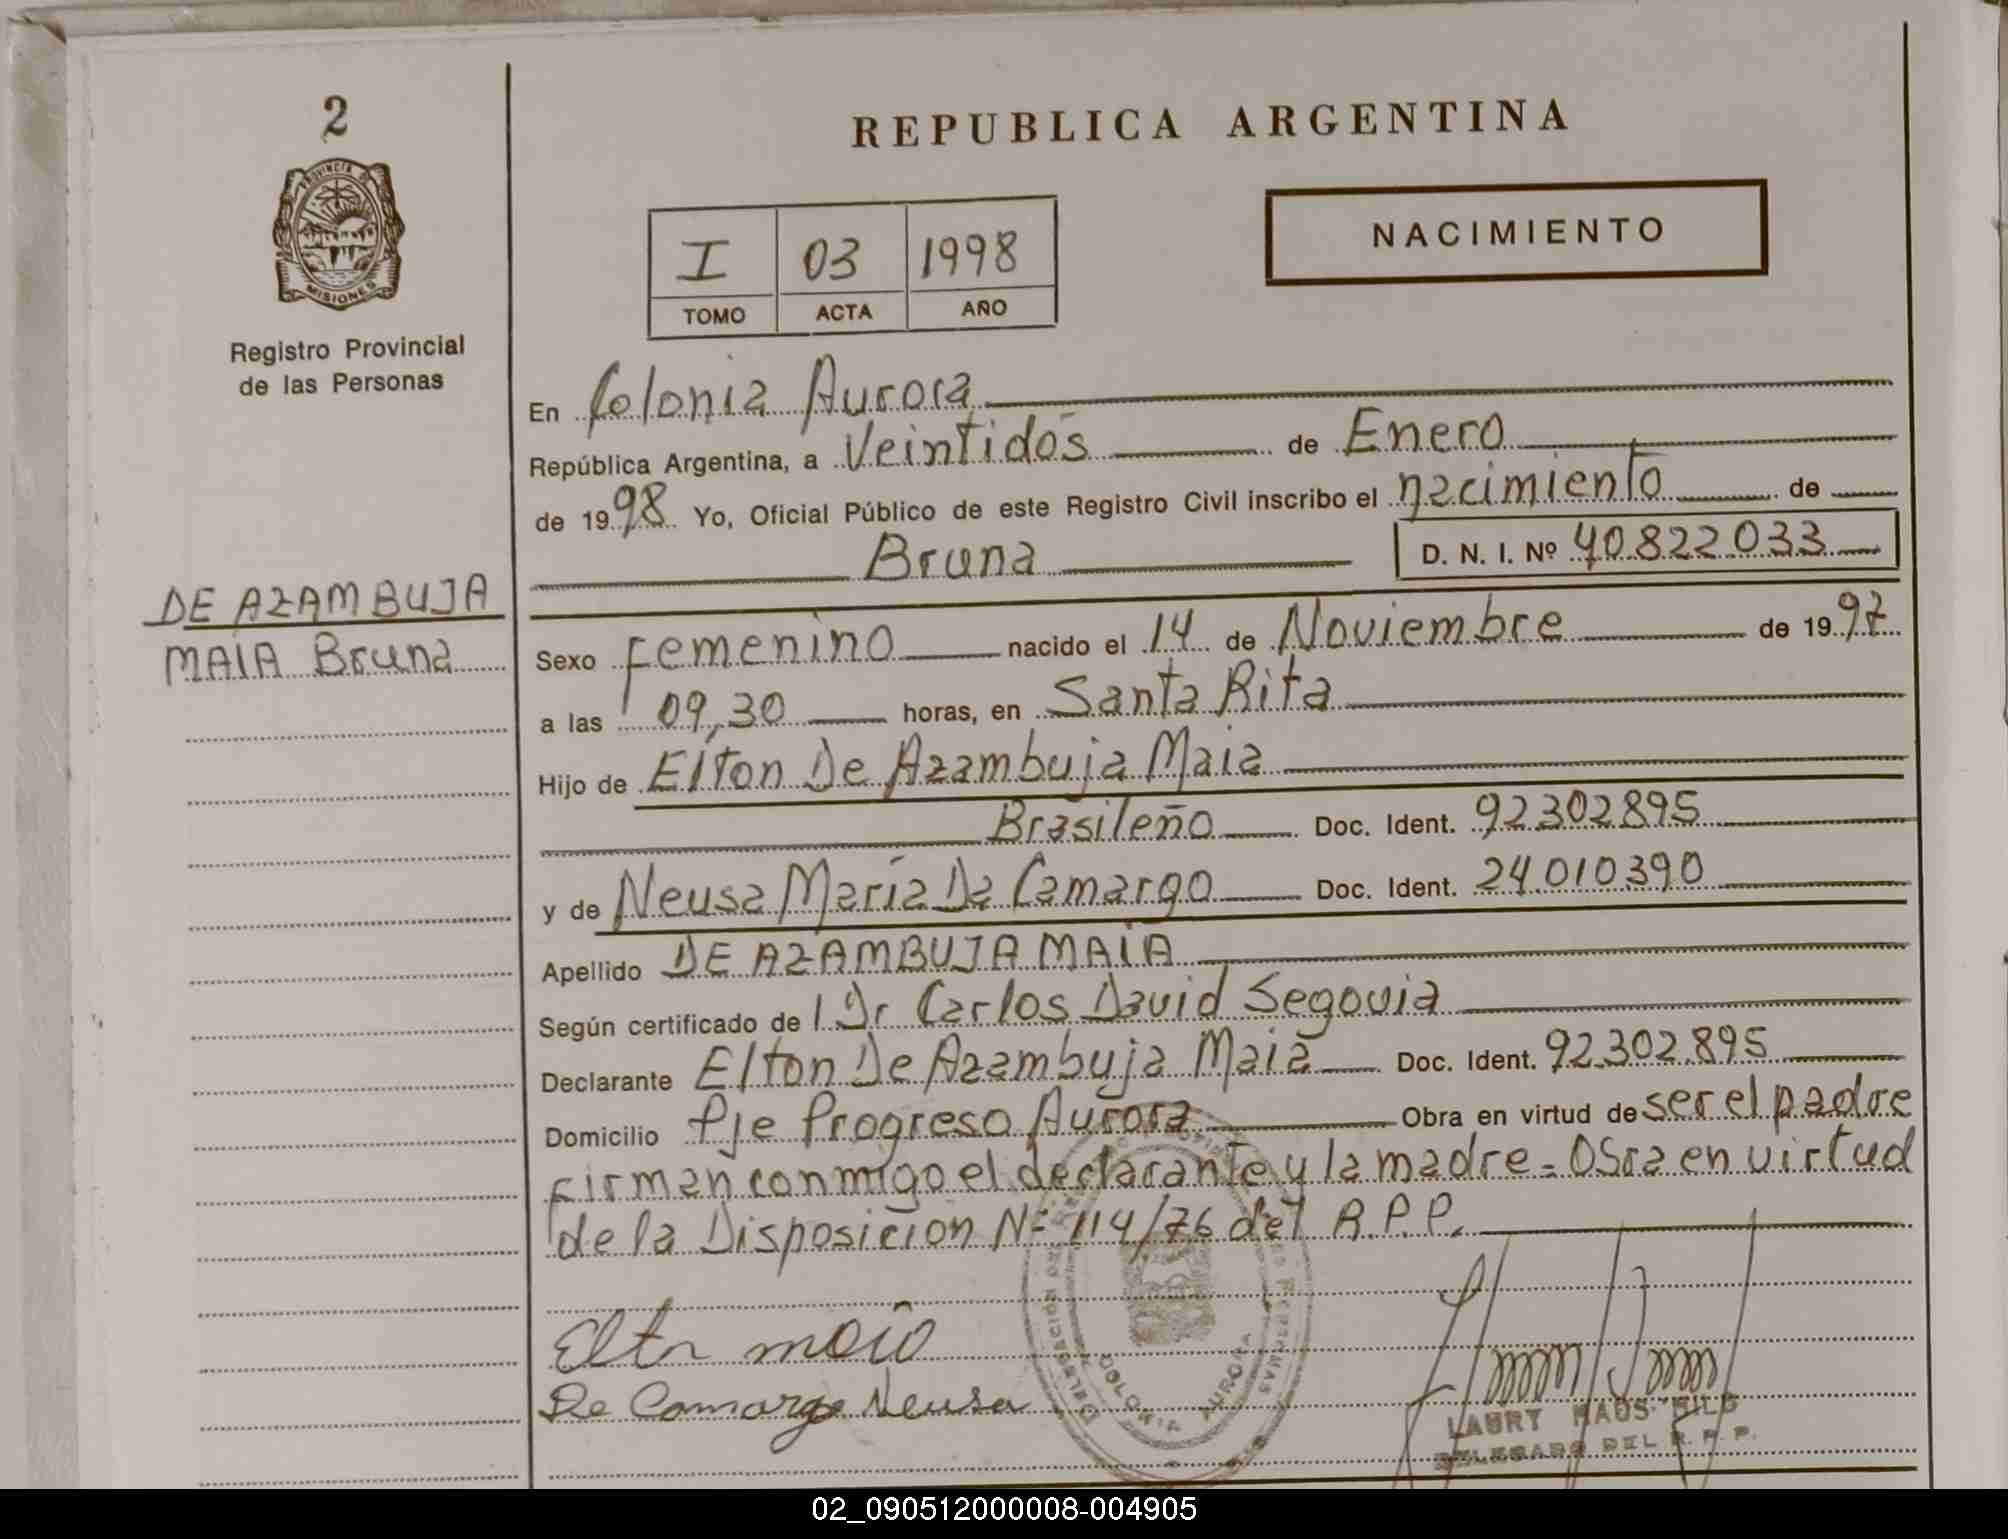 2
PROVINCIA DE
MISIONES
Registro Provincial
de las Personas
DE AZAMBUJA
MAIA Bruna
REPUBLICA ARGENTINA
I 03 1998
TOMO ACTA AÑO
NACIMIENTO
En Colonia Aurora
República Argentina, a Veintidós de Enero
de 1998 Yo, Oficial Público de este Registro Civil inscribo el nacimiento de
Bruna D. N. I. Nº 40822033
Sexo Femenino nacido el 14 de Noviembre de 1997
a las 09,30 horas, en Santa Rita
Hijo de Elton De Azambuja Maia
Brasileño Doc. Ident. 92302895
y de Neusa María Da Camargo Doc. Ident. 24.010.390
Apellido DE AZAMBUJA MAIA
Según certificado de Dr Carlos David Segovia
Declarante Elton De Azambuja Maia Doc. Ident. 92.302.895
Domicilio Pje Progreso Aurora Obra en virtud de ser el padre
firman conmigo el declarante y la madre = OSra en virtud
de la Disposición Nº 114/76 del R.P.P.
Elton maia
De Camargo Neusa
COLONIA AURORA
LAURY HAUS
DELEGADO DEL R. P. P.
02_090512000008-004905